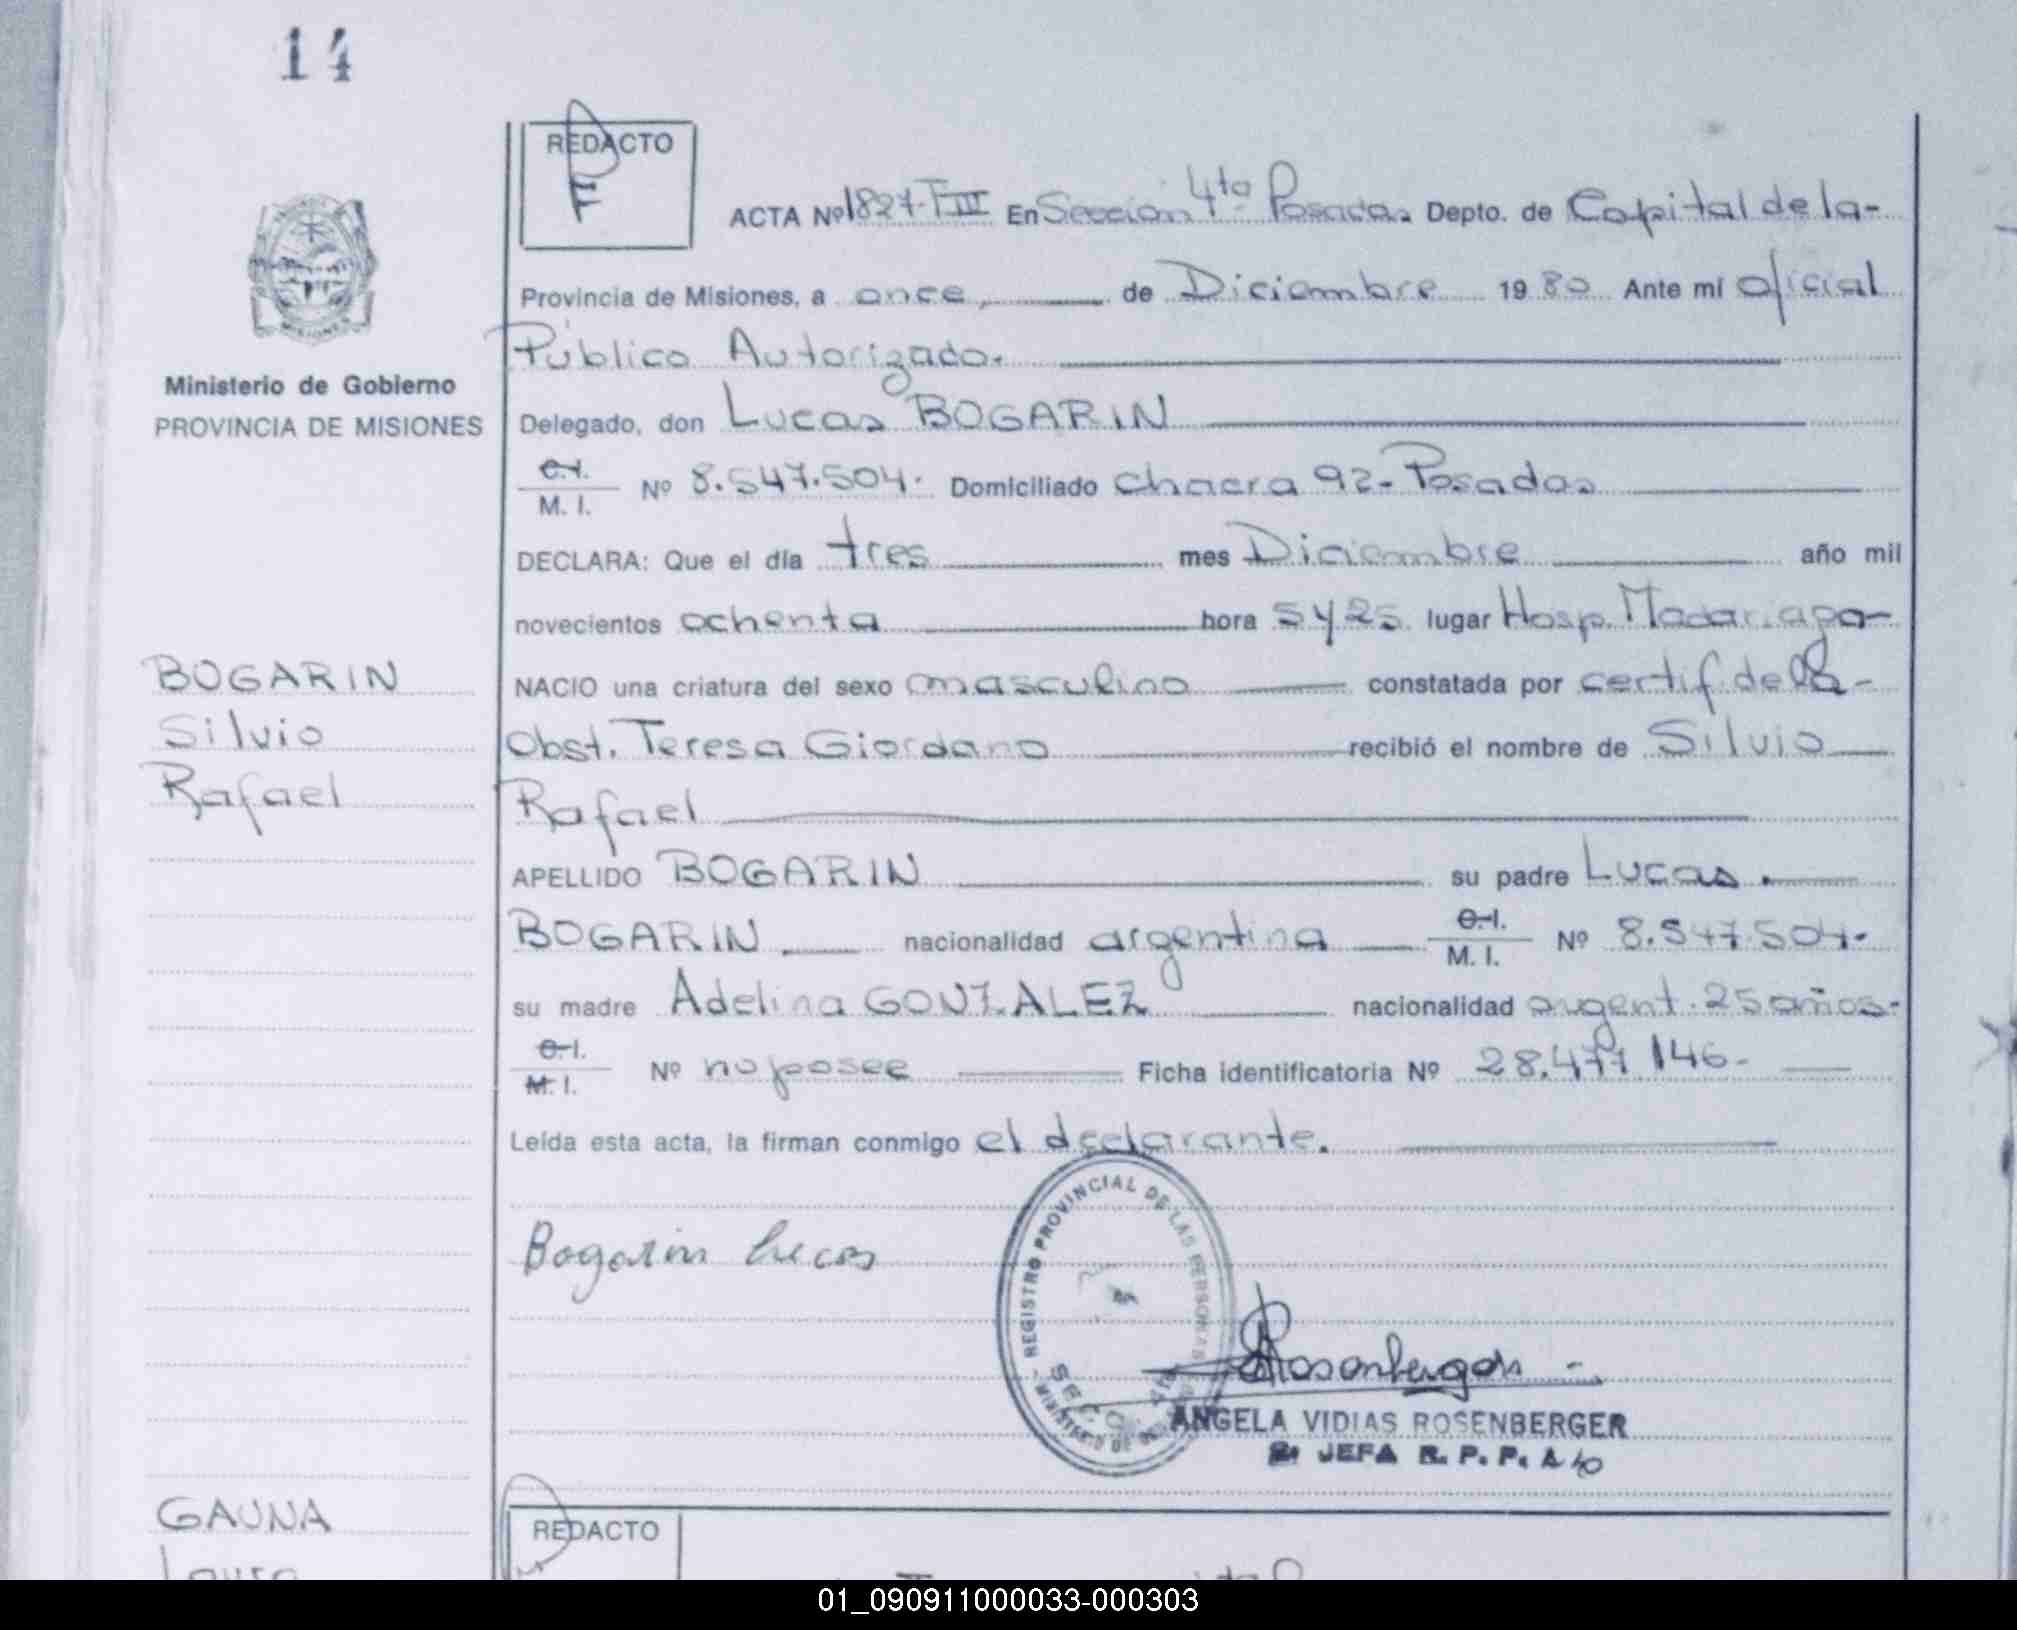 14
REDACTO
F
ACTA Nº 1827-T III En Sección 4ta Posadas Depto. de Capital de la-
Provincia de Misiones, a once, de Diciembre 1980 Ante mí oficial
Público Autorizado.
Ministerio de Gobierno
PROVINCIA DE MISIONES
Delegado, don Lucas BOGARIN
C.I.
M. I. Nº 8.547.504. Domiciliado chacra 92-Posadas
DECLARA: Que el día tres mes Diciembre año mil
novecientos ochenta hora 5 y 25 lugar Hosp. Madariaga-
BOGARIN
Silvio
Rafael
NACIO una criatura del sexo masculino constatada por certif de la-
Obst. Teresa Giordano recibió el nombre de Silvio
Rafael
APELLIDO BOGARIN su padre Lucas.
BOGARIN nacionalidad argentina C.I. M. I. Nº 8.547.504.
su madre Adelina GONZALEZ nacionalidad argent. 25 años-
C.I.
M. I. Nº no posee Ficha identificatoria Nº 28.477 146-
Leída esta acta, la firman conmigo el declarante.
Bogarin Lucas
REGISTRO PROVINCIAL DE LAS PERSONAS
MINISTERIO DE
Rosenberger
ANGELA VIDIAS ROSENBERGER
JEFA R. P. P.
GAUNA
Laura
REDACTO
01_090911000033-000303